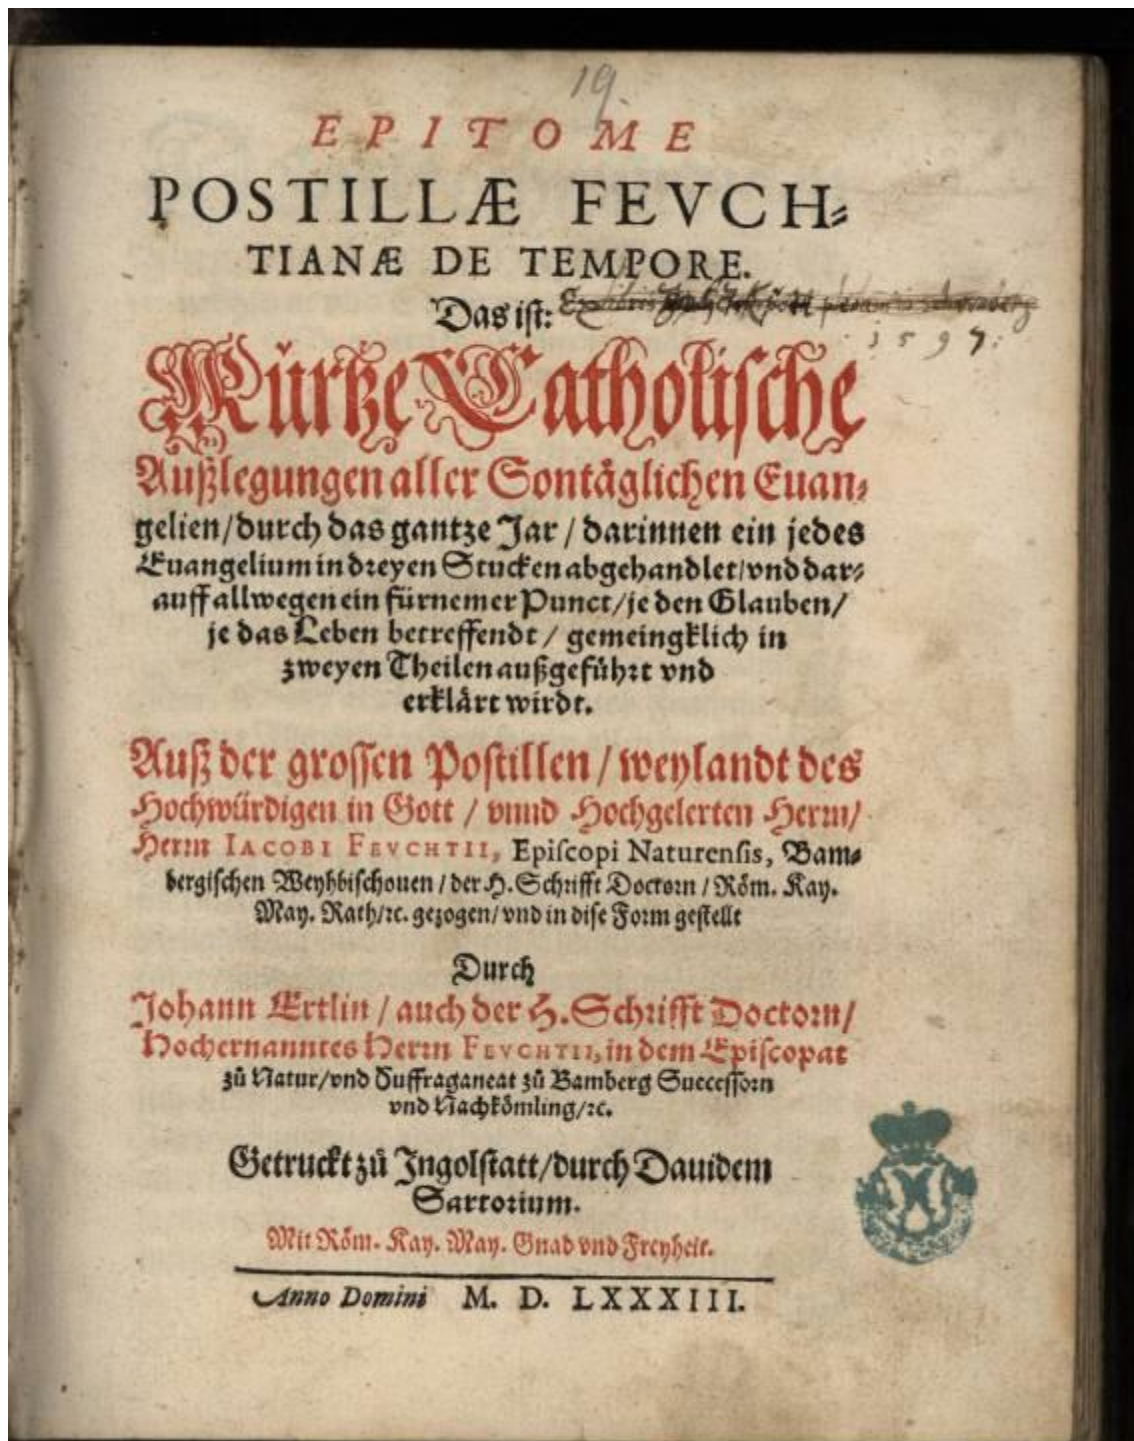 19.
EPITOME
POSTILLÆ FEVCH⸗
TIANÆ DE TEMPORE.
Das ist: Ex libris
1597.
Kürtze Catholische
Außlegungen aller Sontäglichen Euan⸗
gelien/durch das gantze Jar/darinnen ein jedes
Euangelium in dreyen Stucken abgehandlet/vnd dar⸗
auff allwegen ein fürnemer Punct/je den Glauben/
je das Leben betreffendt/gemeingklich in
zweyen Theilen außgeführt vnd
erklärt wirdt.
Auß der grossen Postillen/weylandt des
Hochwürdigen in Gott/vnnd Hochgelerten Herrn/
Herrn IACOBI FEVCHTII, Episcopi Naturensis, Bam⸗
bergischen Weyhbischouen/der H. Schrifft Doctorn/Röm. Kay.
May. Rath/ꝛc. gezogen/vnd in dise Form gestellt
Durch
Johann Ertlin/auch der H. Schrifft Doctorn/
Hochernanntes Herrn FEVCHTII, in dem Episcopat
zů Natur/vnd Suffraganeat zů Bamberg Successorn
vnd Nachkömling/ꝛc.
Getruckt zů Ingolstatt/durch Dauidem
Sartorium.
Mit Röm. Kay. May. Gnad vnd Freyheit.
Anno Domini M. D. LXXXIII.